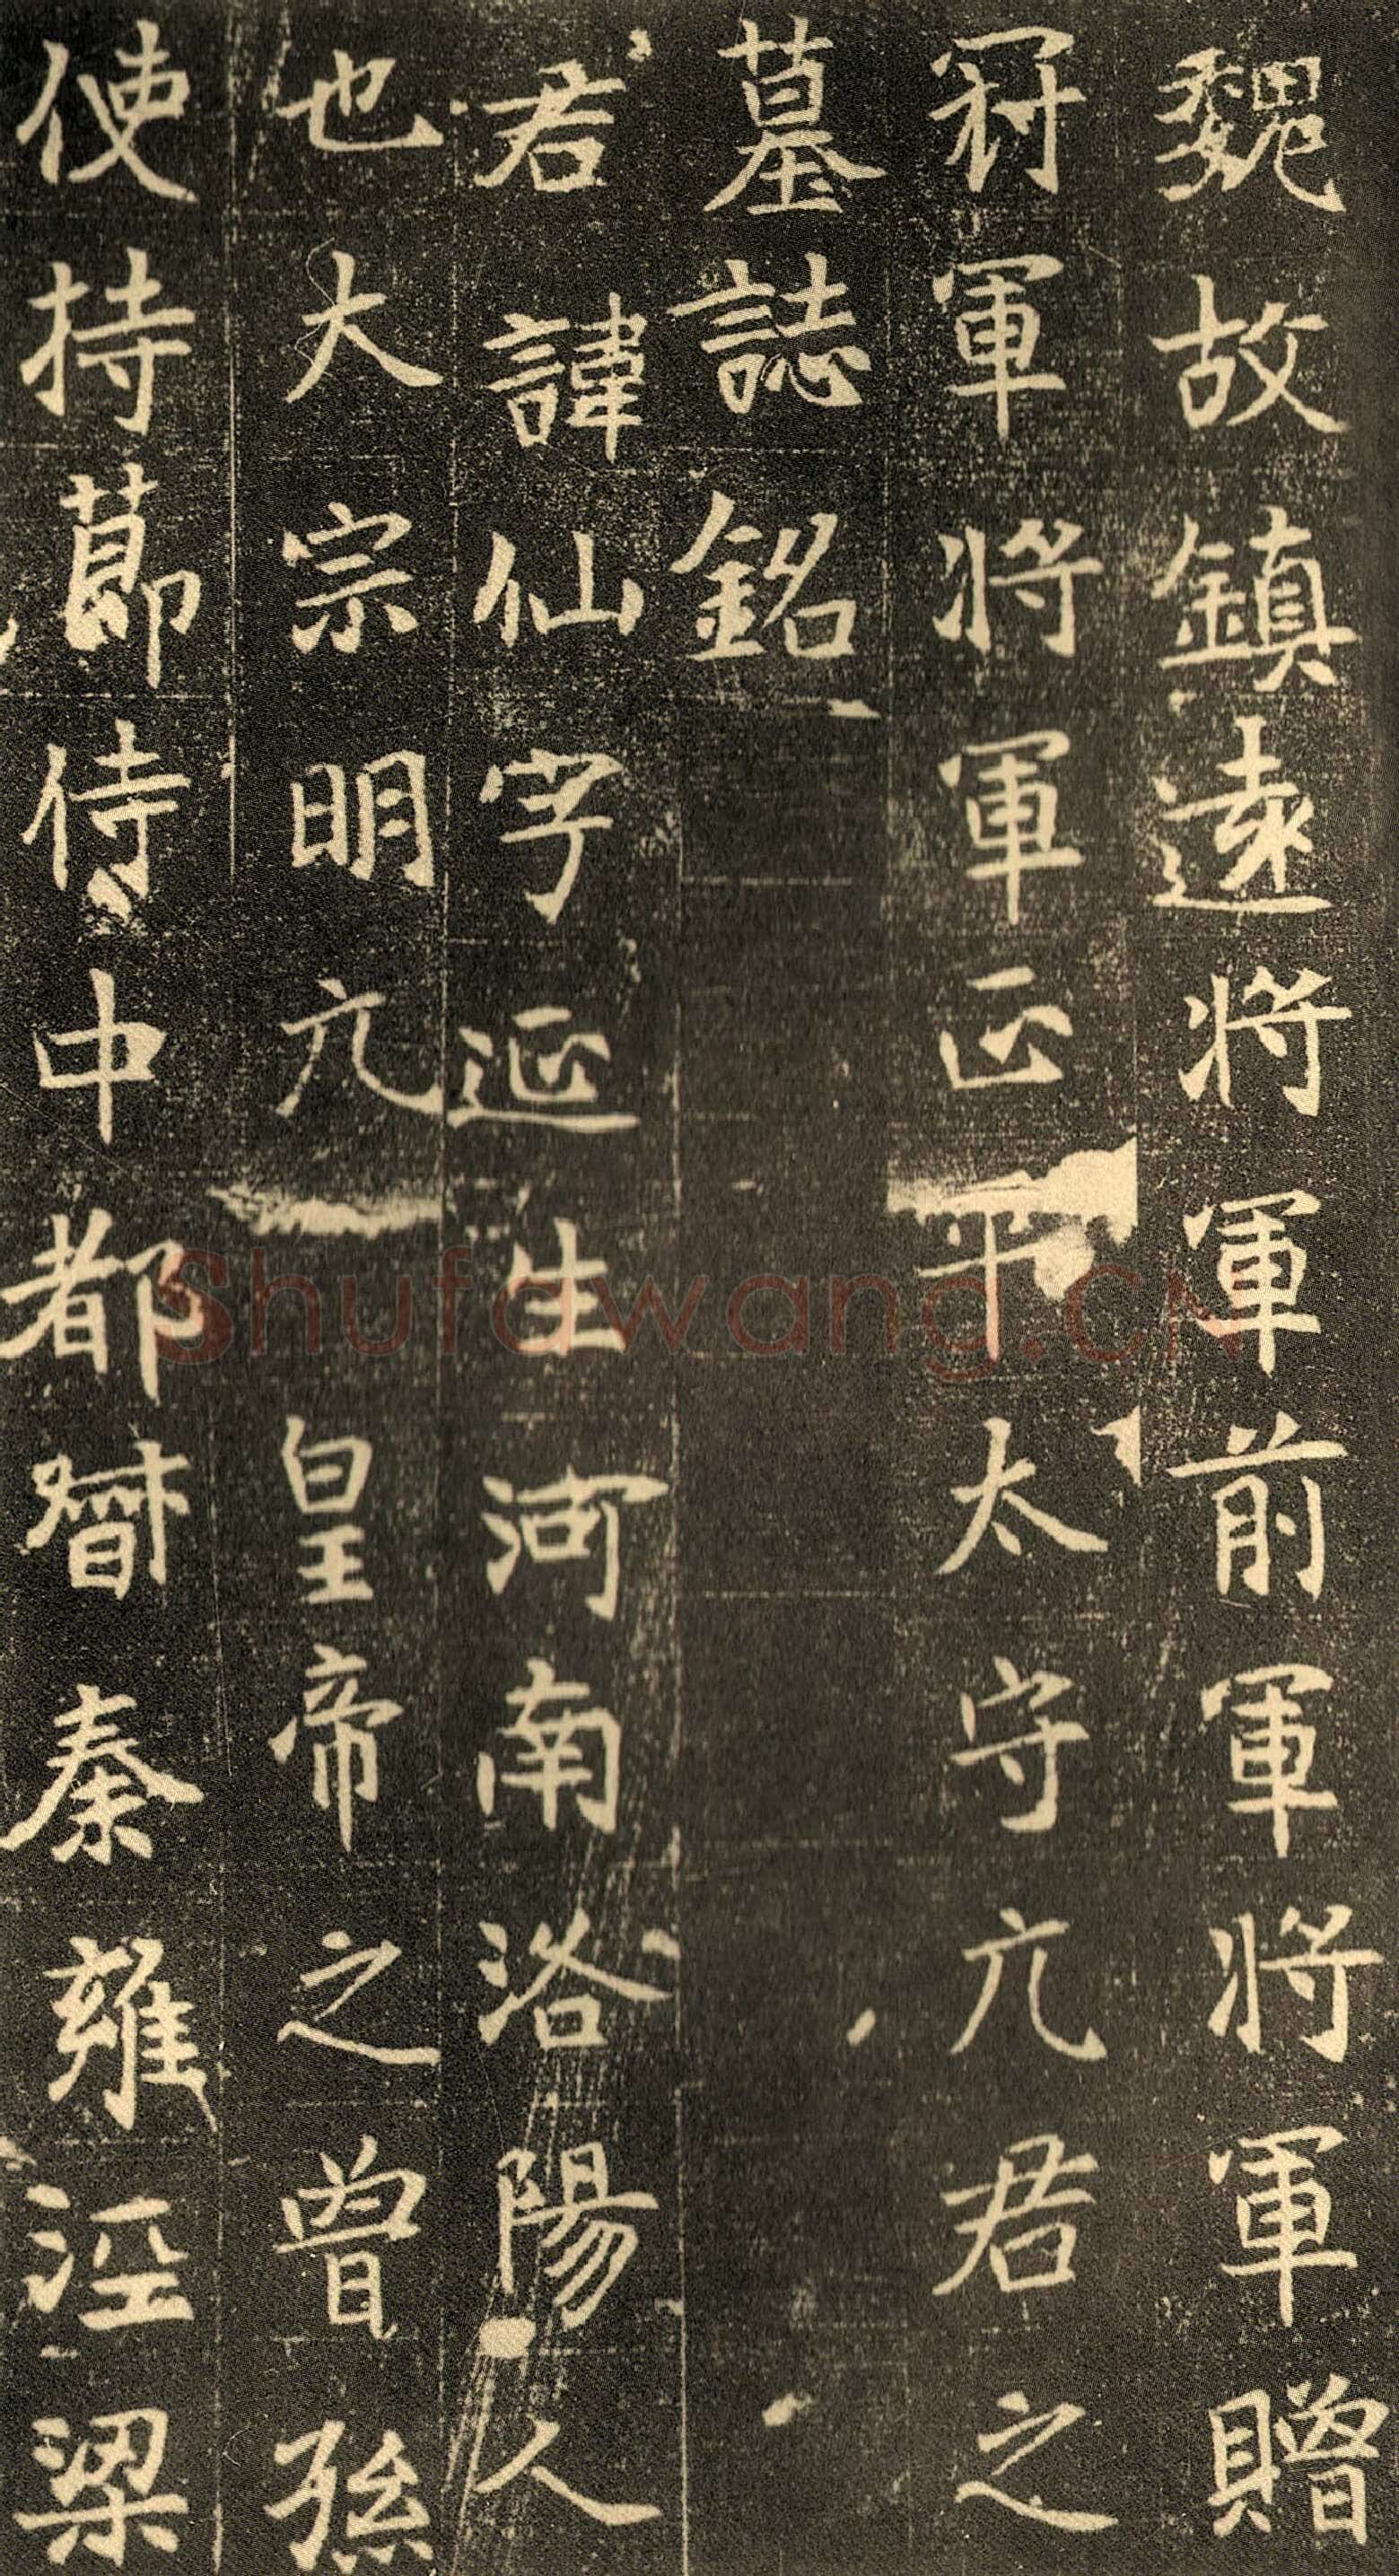 魏故鎮遠將軍前軍將軍贈
冠軍將軍正平太守元君之
墓誌銘
君諱仙字延生河南洛陽人
也大宗明元皇帝之曾孫
使持節侍中都督秦雍涇梁
Shufawang.CN